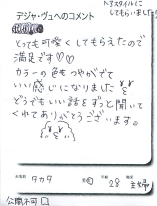 トアスタイルに
してもらいました!
デジャ・ヴュへのコメント
とっても可愛くしてもらえたので
満足です♡♡
カラーの色もつやがでて
いい感じになりました
どうでもいい話をずっと聞いて
くれてありがとうございます。
お名前 タカタ 年齢 28 主婦
公開不可 □